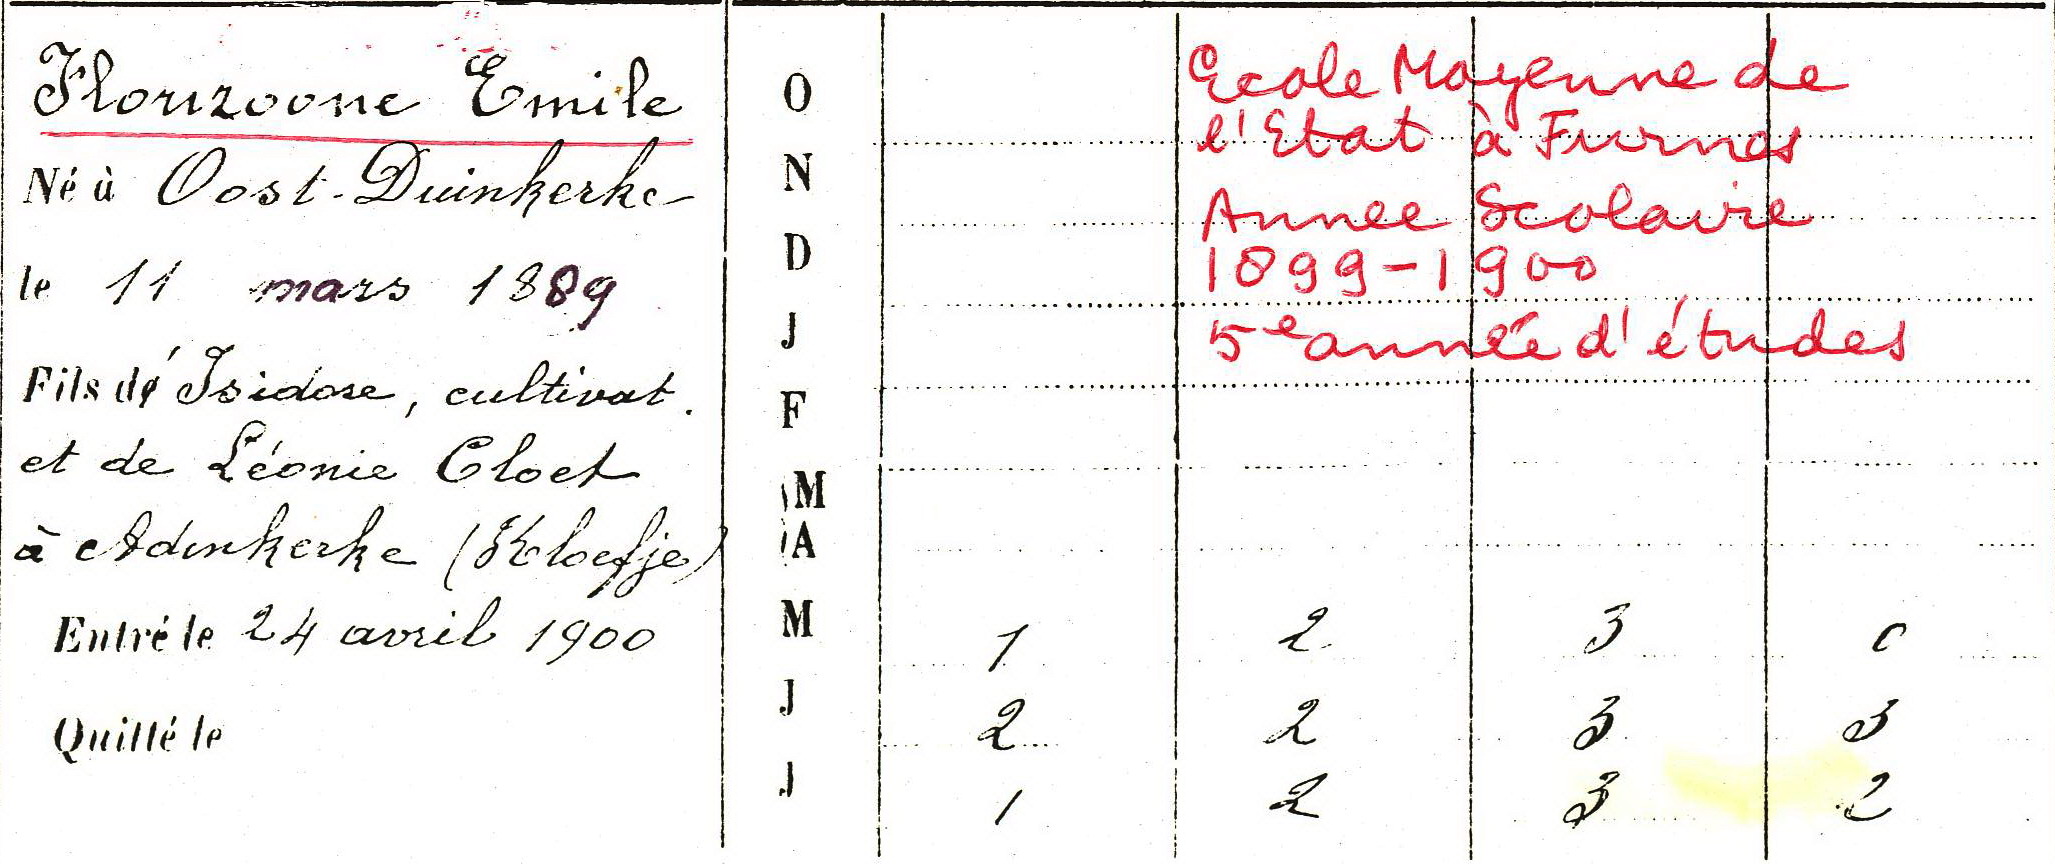 Florizoone Emile
Né à Oost-Duinkerke
le 11 mars 1889
Fils de Isidore, cultivat.
et de Léonie Cloet
à Adinkerke (Kloefje)
Entré le 24 avril 1900
Quitté le
Ecole Moyenne de
l'Etat à Furnes
Annee Scolaire
1899-1900
5e année d'études
O
N
D
J
F
M
A
M 1 2 3 0
J 2 2 3 3
J 1 2 3 2